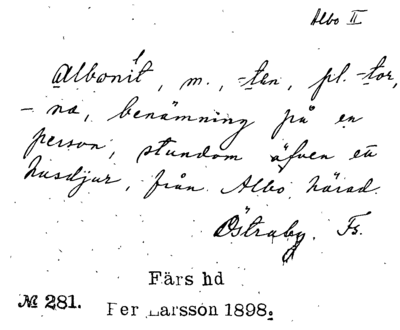 Albo II
albonit, m., -ten, pl. -tor,
-na, benämning på en
person, stundom äfven ett
husdjur, från Albo härad.
Östraby. Fs.
Färs hd
№ 281. Per Larsson 1898.